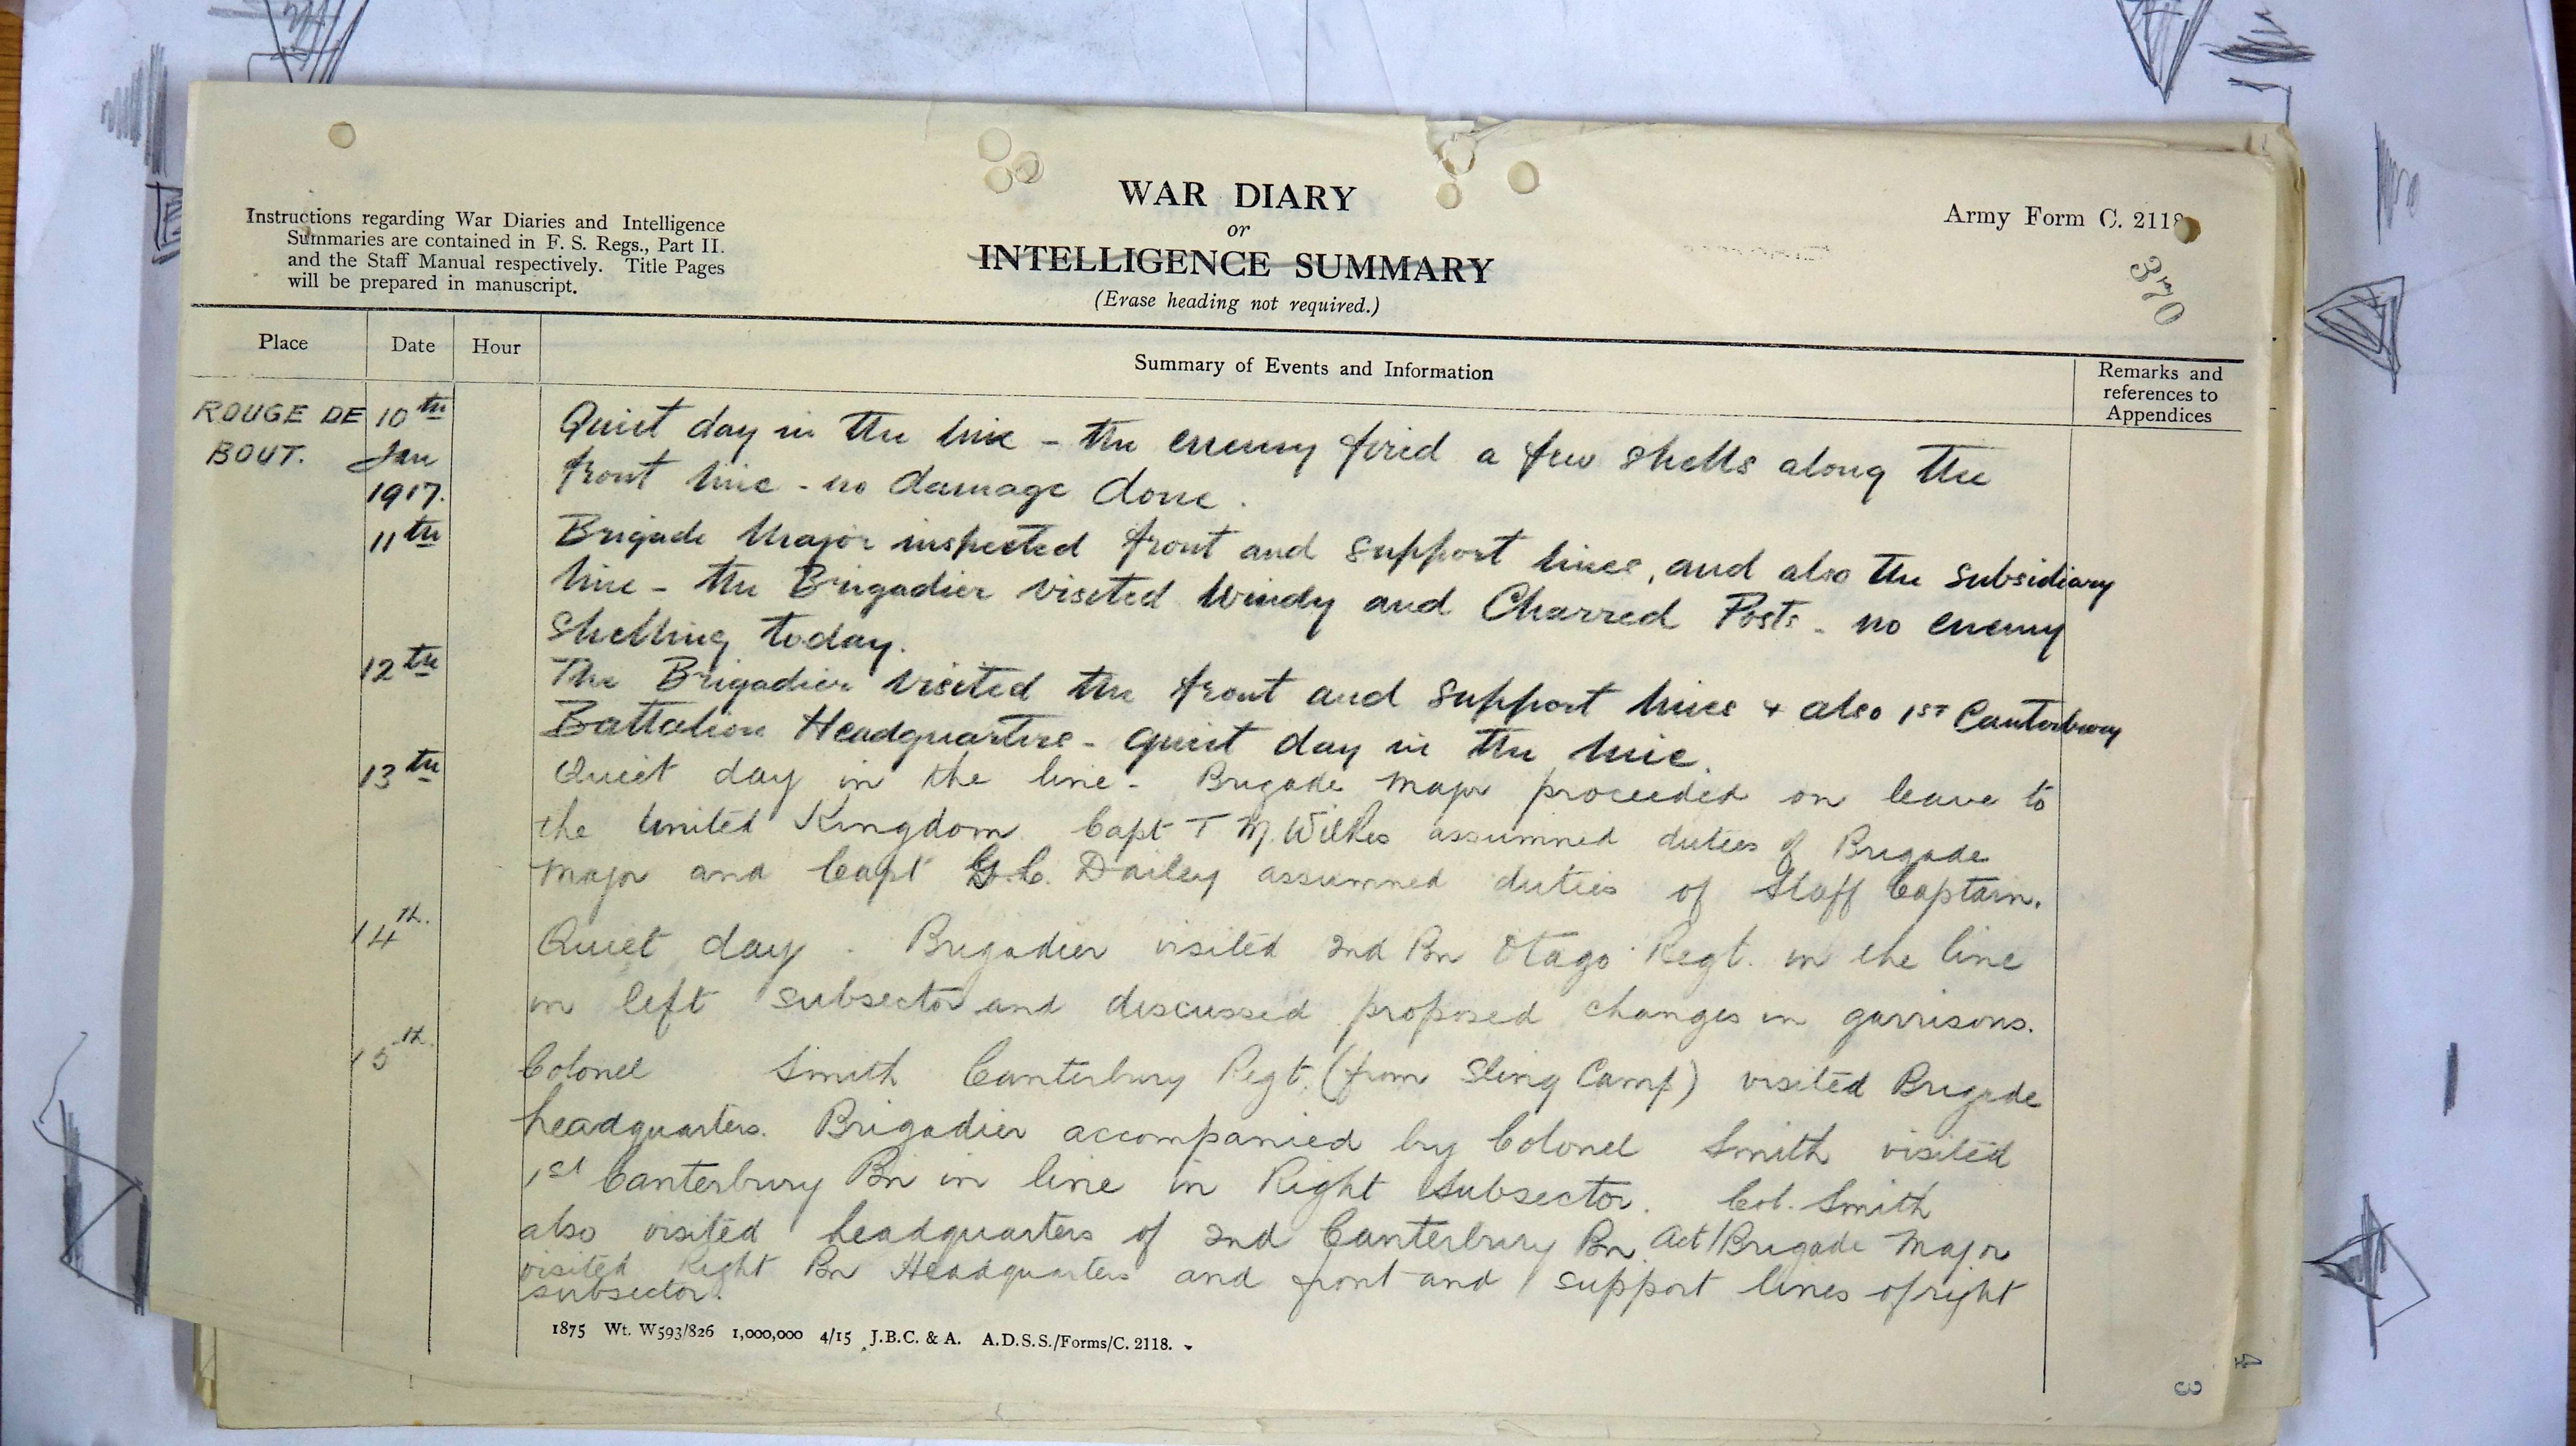 Instructions regarding War Diaries and Intelligence
Summaries are contained in F. S. Regs., Part II.
and the Staff Manual respectively. Title Pages
will be prepared in manuscript.
WAR DIARY
or
INTELLIGENCE SUMMARY
(Erase heading not required.)
Army Form C. 2118
370
Place
Date
Hour
Summary of Events and Information
Remarks and
references to
Appendices
ROUGE DE
BOUT.
10th
Jan
1917.
Quiet day in the line - the enemy fired a few shells along the
front line - no damage done.
11th
Brigade Major inspected front and support lines, and also the subsidiary
line - the Brigadier visited Windy and Charred Posts - no enemy
shelling today.
12th
The Brigadier visited the front and support lines & also 1st Canterbury
Battalion Headquarters - quiet day in the line.
13th
Quiet day in the line - Brigade Major proceeded on leave to
the United Kingdom. Capt T M. Wilkes assumned duties of Brigade
Major and Capt G.C. Dailey assumned duties of Staff Captain.
14th.
Quiet day - Brigadier visited 2nd Bn Otago Regt. in the line
in left subsector and discussed proposed changes in garrisons.
15th.
Colonel Smith Canterbury Regt. (from Sling Camp) visited Brigade
headquarters. Brigadier accompanied by Colonel Smith visited
1st Canterbury Bn in line in Right Subsector. Col. Smith
also visited headquarters of 2nd Canterbury Bn. Act/Brigade Major
visited Right Bn Headquarters and front and support lines of right
subsector.
1875 Wt. W593/826 1,000,000 4/15 J.B.C. & A. A.D.S.S./Forms/C. 2118.
4
3